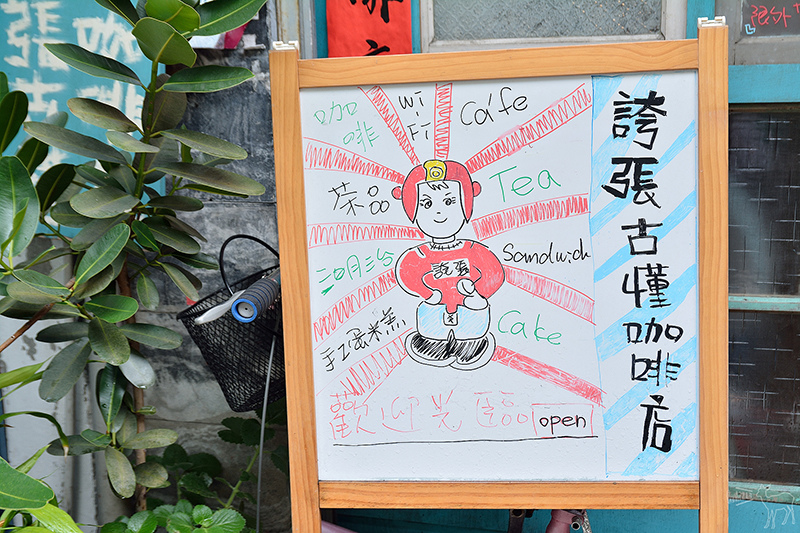 咖啡
Wi-Fi
Cáfe
茶品
Tea
三明治
Sandwich
手工蛋糕
Cake
誇張
歡迎光臨
open
誇張古懂咖啡店